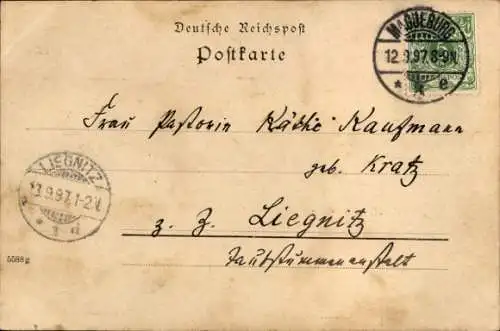 Deutsche Reichspost
Postkarte
MAGDEBURG
12.9.97.8-9N.
* k e
Frau Pastorin Käthe Kaufmann
geb. Kratz
LIEGNITZ
13.9.97.1-2N.
* a d
z. Z. Liegnitz
Taubstummenanstalt
5088g